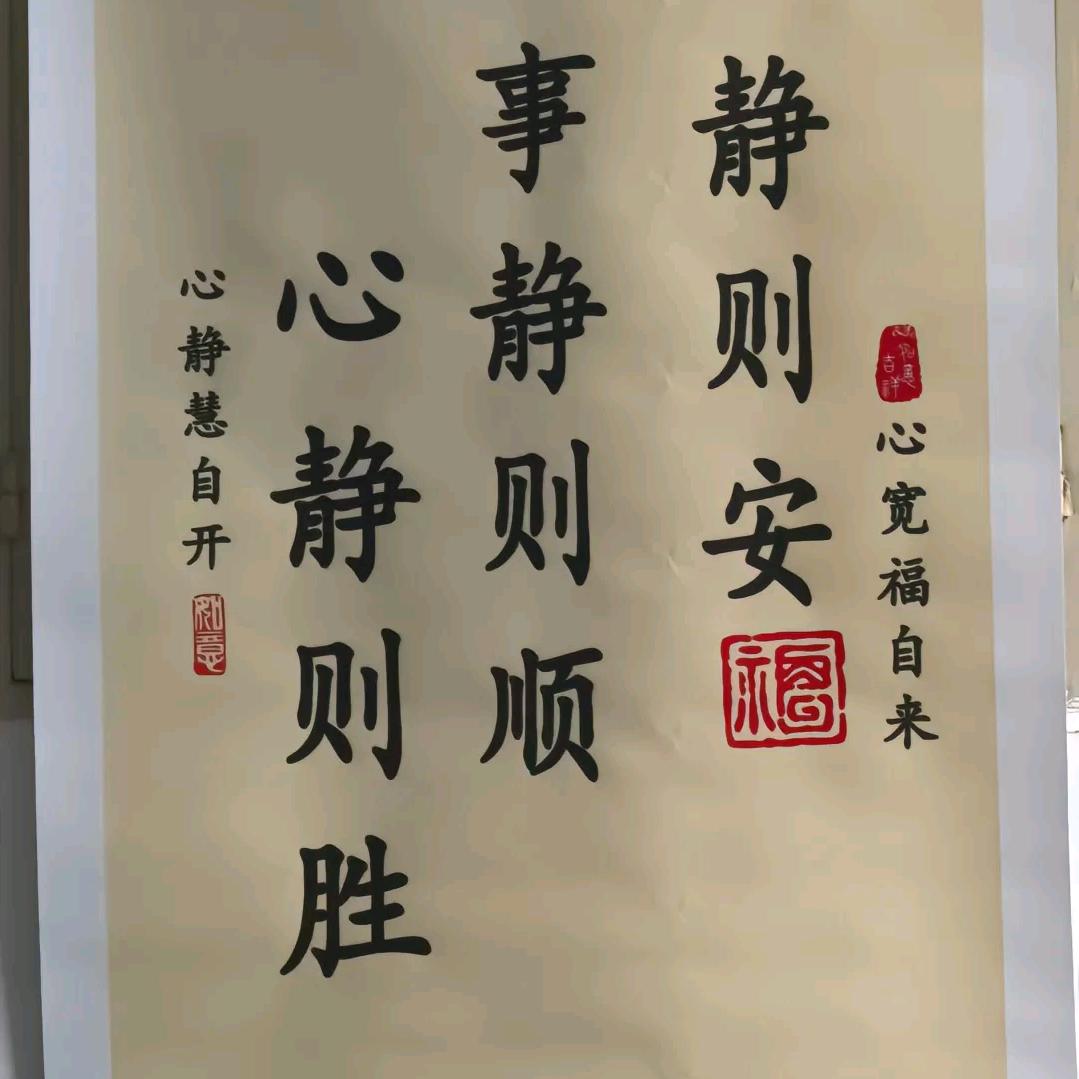 心宽福自来
静则安
福
事静静则顺
心静则胜
心静慧自开
如意